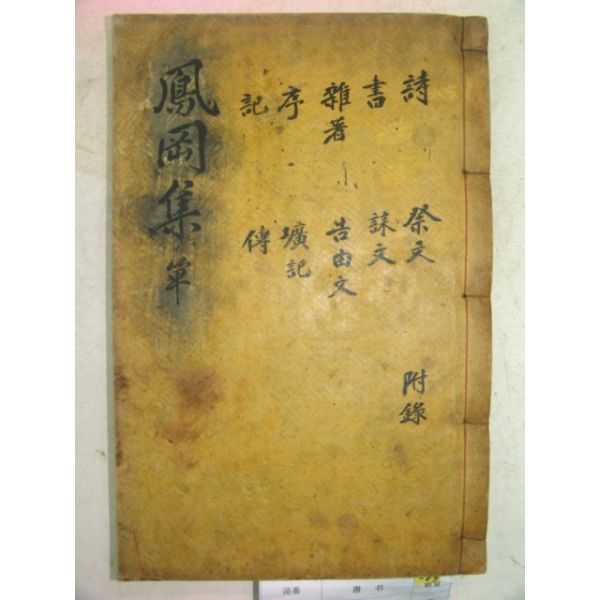 鳳岡集 單
詩 祭文 附錄
書 誄文
雜著 告由文
序 壙記
記 傳
書名